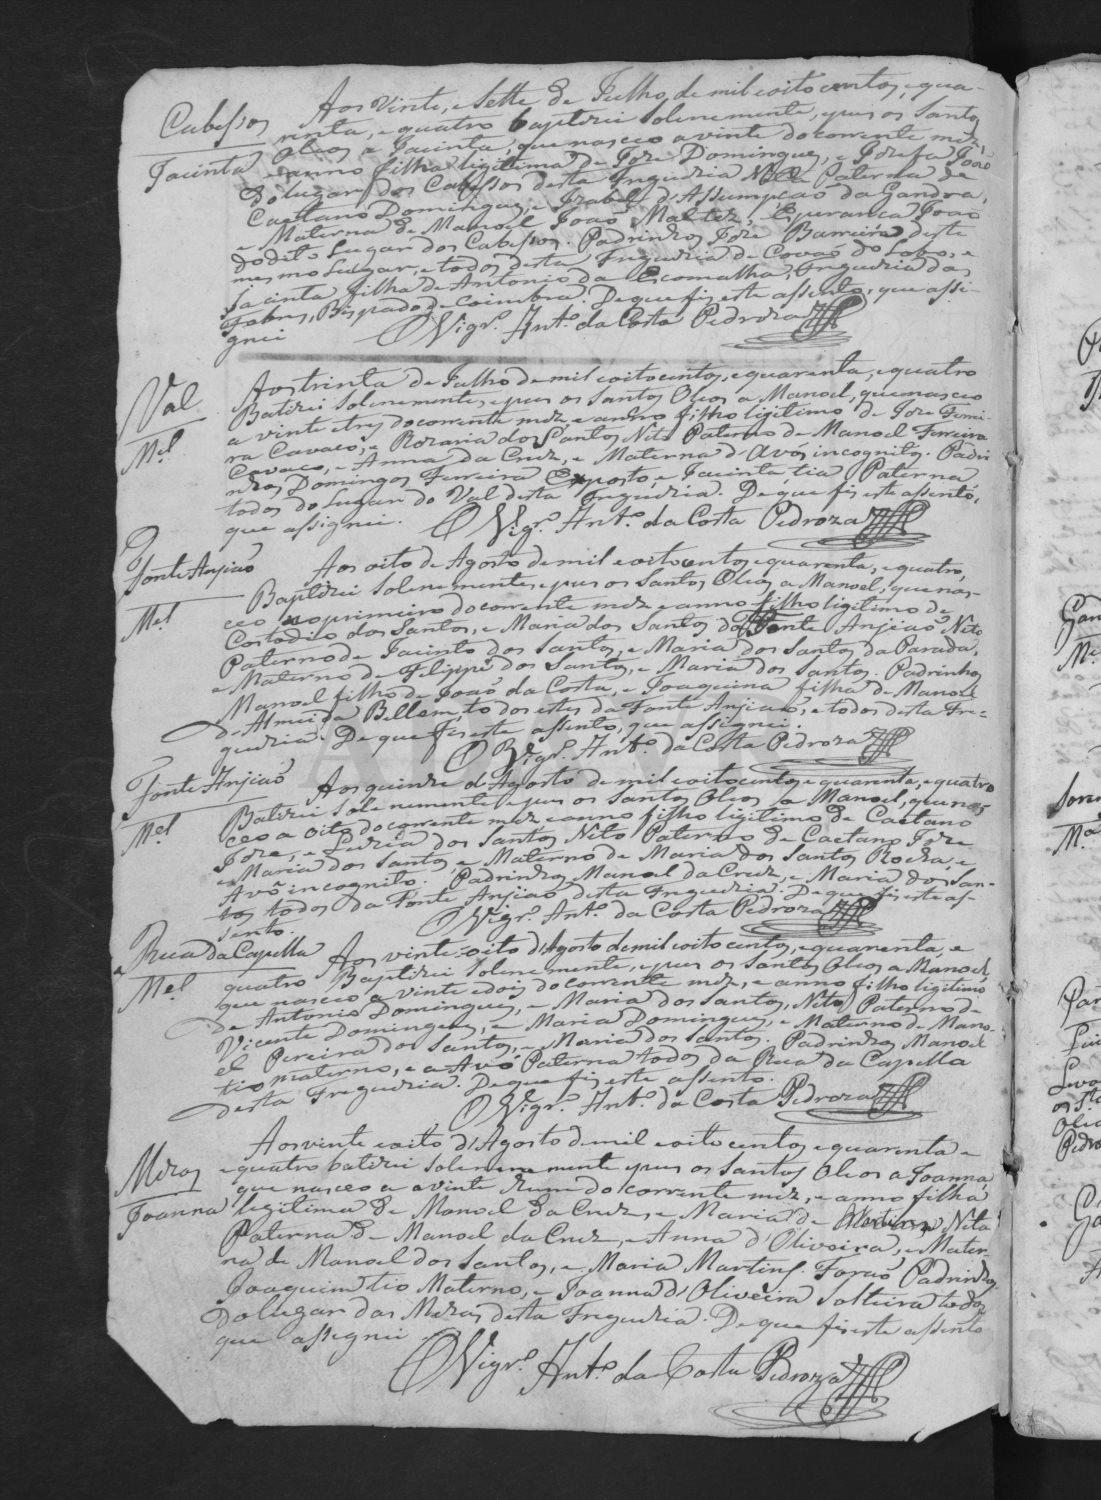 Cabessos
Jacinta
Aos vinte, e sette de Julho, de mil e oito centos, e qua-
renta, e quatro baptizei solenemente, e pus os Santos
Oleos a Jacinta, que nasceo a vinte do corrente mez
e anno filha legitima de Joze Domingues, e Jozefa João
do lugar dos Cabessos desta Freguezia Neta Paterna de
Caetano Domingues, e Izabel d'Assumpcaõ da Gandra,
e Materna de Manoel João Maltez, Esperanca João
do dito Lugar dos Cabessos. Padrinhos Joze Barreira deste
mesmo Lugar, e todos desta Freguezia de Covaõ do Lobo, e
Jacinta filha de Antonio da Escomalha, Freguezia das
Febres, Bispado de Coimbra. De que fis este assento, que assi-
gnei
O Vigr.º Ant.º da Costa Pedroza
Val
M.el
Aos trinta de Julho de mil e oito centos, e quarenta, e quatro
Batizei solenemente, e pus os Santos Oleos a Manoel, que nasceo
a vinte e tres do corrente mez, e anno filho ligitimo de Joze Ferrei-
ra Cavaco, e Rozaria dos Santos Neto Paterno de Manoel Ferreira
Cavaco, e Anna da Cruz, e Materna d'Avós incognitos. Padri
nhos Domingos Ferreira Exposto, e Jacinta, tia Paterna
todos do Lugar do Val desta Freguezia. De que fis este assento,
que assignei.
O Vigr.º Ant.º da Costa Pedroza
Fonte Anjiaõ
M.el
Aos oito de Agosto de mil e oito centos e quarenta, e quatro,
Baptizei solenemente, e pus os Santos Oleos a Manoel, que nas-
ceo no primeiro do corrente mez e anno filho ligitimo de
Costodio dos Santos, e Maria dos Santos da Fonte Anjiaõ Neto
Paterno de Jacinto dos Santos, e Maria dos Santos da Parada,
e Materno de Filippe dos Santos, e Maria dos Santos. Padrinhos
Manoel filho de Joaõ da Costa, e Joaquina filha de Manoel
d'Almeida Bellem, todos estes da Fonte Anjiaõ, e todos desta Fre-
guezia. De que fis este assento, que assignei.
O Vigr.º Ant.º da Costa Pedroza
Fonte Anjiaõ
M.el
Aos quinze d'Agosto de mil e oito centos e quarenta, e quatro
Batizei solenemente e pus os Santos Oleos a Manoel, que nas
ceo a oito do corrente mez e anno filho ligitimo de Caetano
Joze, e Luzia dos Santos Neto Paterno de Caetano Joze
e Maria dos Santos, e Materno de Maria dos Santos Rocha, e
Avô incognito. Padrinhos Manoel da Cruz, e Maria dos San-
tos todos da Fonte Anjiaõ desta Freguezia. De que fis este as-
sento.
O Vigr.º Ant.º da Costa Pedroza
Rua da Capella
M.el
Aos vinte oito d'Agosto de mil e oito centos, e quarenta, e
quatro Baptizei solenemente, e pus os Santos Oleos a Manoel,
que nasceo a vinte e dois do corrente mez, e anno filho ligitimo
de Antonio Domingues, e Maria dos Santos, Neto Paterno de
Vicente Domingues, e Maria Domingues, e Materno de Mano-
el Pereira dos Santos, e Maria dos Santos. Padrinhos Manoel
tio materno, e a Avó Paterna todos da Rua da Capella
desta Freguezia. De que fis este assento.
O Vigr.º Ant.º da Costa Pedroza
Mezas
Joanna
Aos vinte e oito d'Agosto de mil e oito centos e quarenta e
quatro batizei solenemente e pus os Santos Oleos a Joanna,
que nasceo a vinte e hum do corrente mez, e anno filha
legitima de Manoel da Cruz, e Maria de Neta
Paterna de Manoel da Cruz, e Anna d'Oliveira, e Mater-
na de Manoel dos Santos, e Maria Martins. Foraõ Padrinhos
Joaquim tio Materno, e Joanna d'Oliveira solteira todos
do Lugar das Mezas desta Freguezia. De que fis este assento
que assignei
O Vigr.º Ant.º da Costa Pedroza